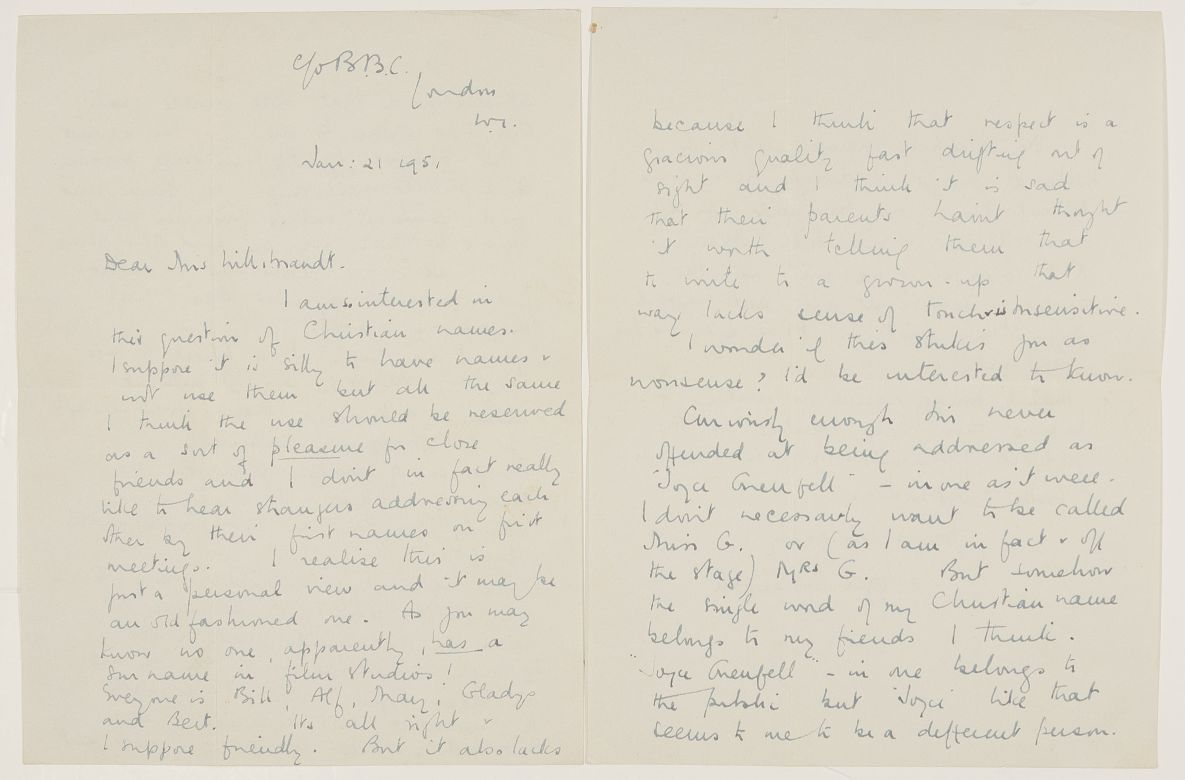 c/o B.B.C.
London
W.1.
Jan: 21 1951
Dear Miss Hillsbrandt.
I am so interested in
this question of Christian names.
I suppose it is silly to have names &
not use them but all the same
I think the use should be reserved
as a sort of pleasure for close
friends and I don't in fact really
like to hear strangers addressing each
other by their first names on first
meetings. I realise this is
just a personal view and it may be
an old fashioned one. As you may
know no one, apparently, has a
surname in film studios!
Everyone is Bill, Alf, Mary, Gladys
and Bert. Its all right &
I suppose friendly. But it also lacks
because I think that respect is a
gracious quality fast drifting out of
sight and I think it is sad
that their parents haven't thought
it worth telling them that
to write to a grown-up that
way lacks sense of touch & is insensitive.
I wonder if this strikes you as
nonsense? I'd be interested to know.
Curiously enough I'm never
offended at being addressed as
"Joyce Grenfell" - in one as it were.
I don't necessarily want to be called
Miss G. or (as I am in fact & off
the stage) Mrs G. But somehow
the single word of my Christian name
belongs to my friends I think.
"Joyce Grenfell" - in one belongs to
the public but "Joyce" like that
seems to me to be a different person.